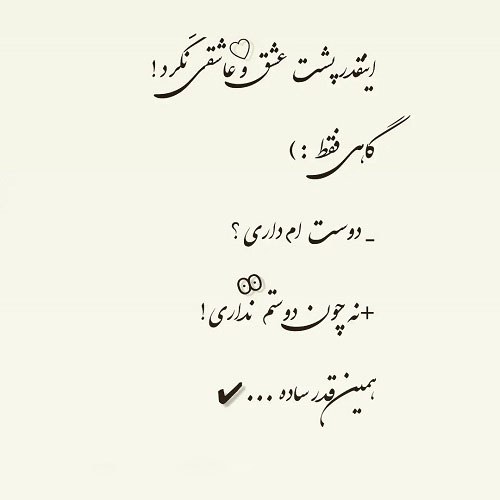 اینقدر پشت عشق و عاشقی نَگرد!
گاهی فقط :)
_ دوست ام داری؟
+نه چون دوستم نداری!
همین قدر ساده ...✔